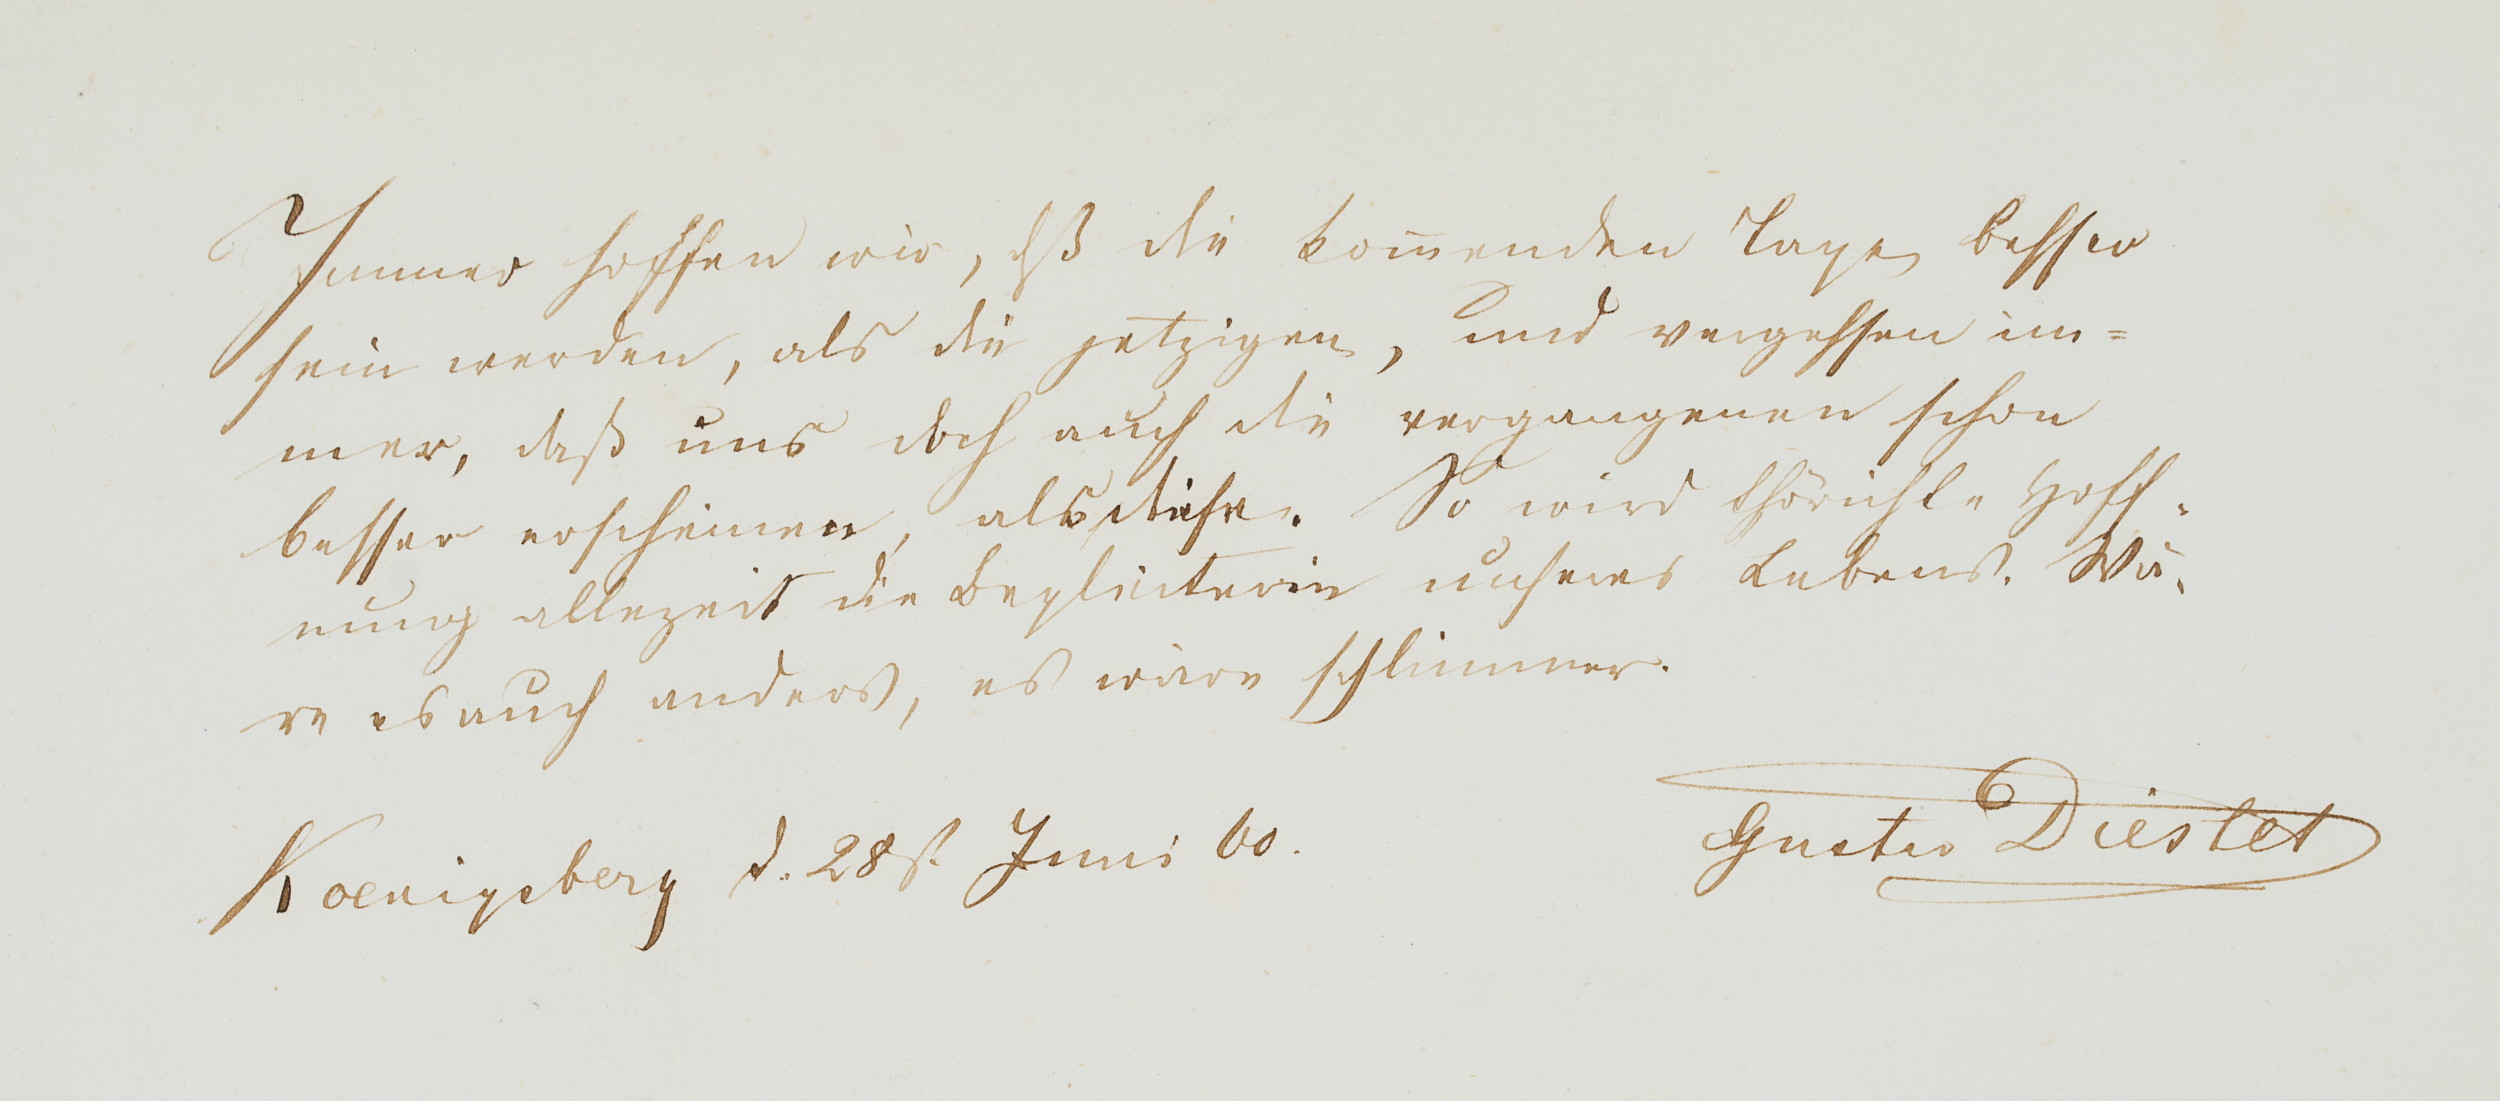 Immer hoffen wir, dß die kom̄enden Tage besser
sein werden, als die jetzigen, und vergessen im=
mer, daß uns doch auch die vergangenen schon
besser erscheinen, als diese. So wird thörichte Hoff=
nung allezeit die Begleiterin unseres Lebens. Wä=
re es auch anders, es wäre schlimmer.
Koenigsberg d. 28st Juni 60.
Gustav Diestel